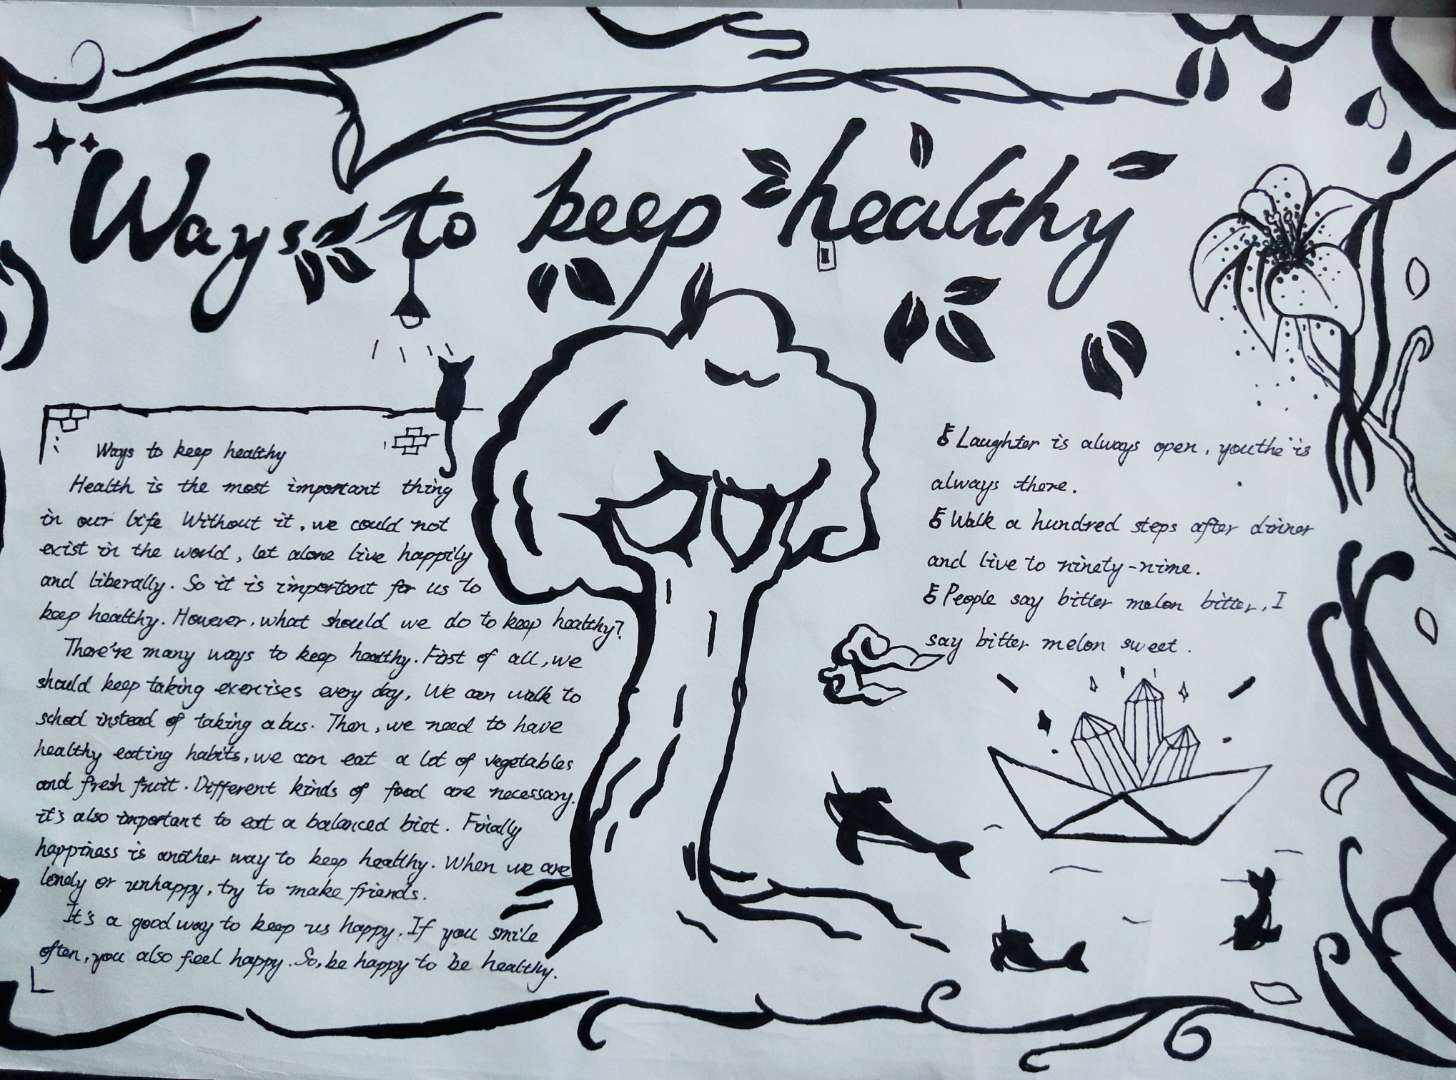 Ways to keep healthy
Ways to keep healthy
Health is the most important thing
in our life Without it, we could not
exist in the world, let alone live happily
and liberally. So it is important for us to
keep healthy. However, what should we do to keep healthy?
There're many ways to keep healthy. First of all, we
should keep taking exercises every day, We can walk to
school instead of taking a bus. Then, we need to have
healthy eating habits, we can eat a lot of vegetables
and fresh fruit. Different kinds of food are necessary.
it's also important to eat a balanced biet. Finally
happiness is another way to keep healthy. When we are
lonely or unhappy, try to make friends.
It's a good way to keep us happy. If you smile
often, you also feel happy. So, be happy to be healthy.
Laughter is always open, youthe is
always there.
Walk a hundred steps after dinner
and live to ninety-nime.
People say bitter melon bitter, I
say bitter melon sweet.